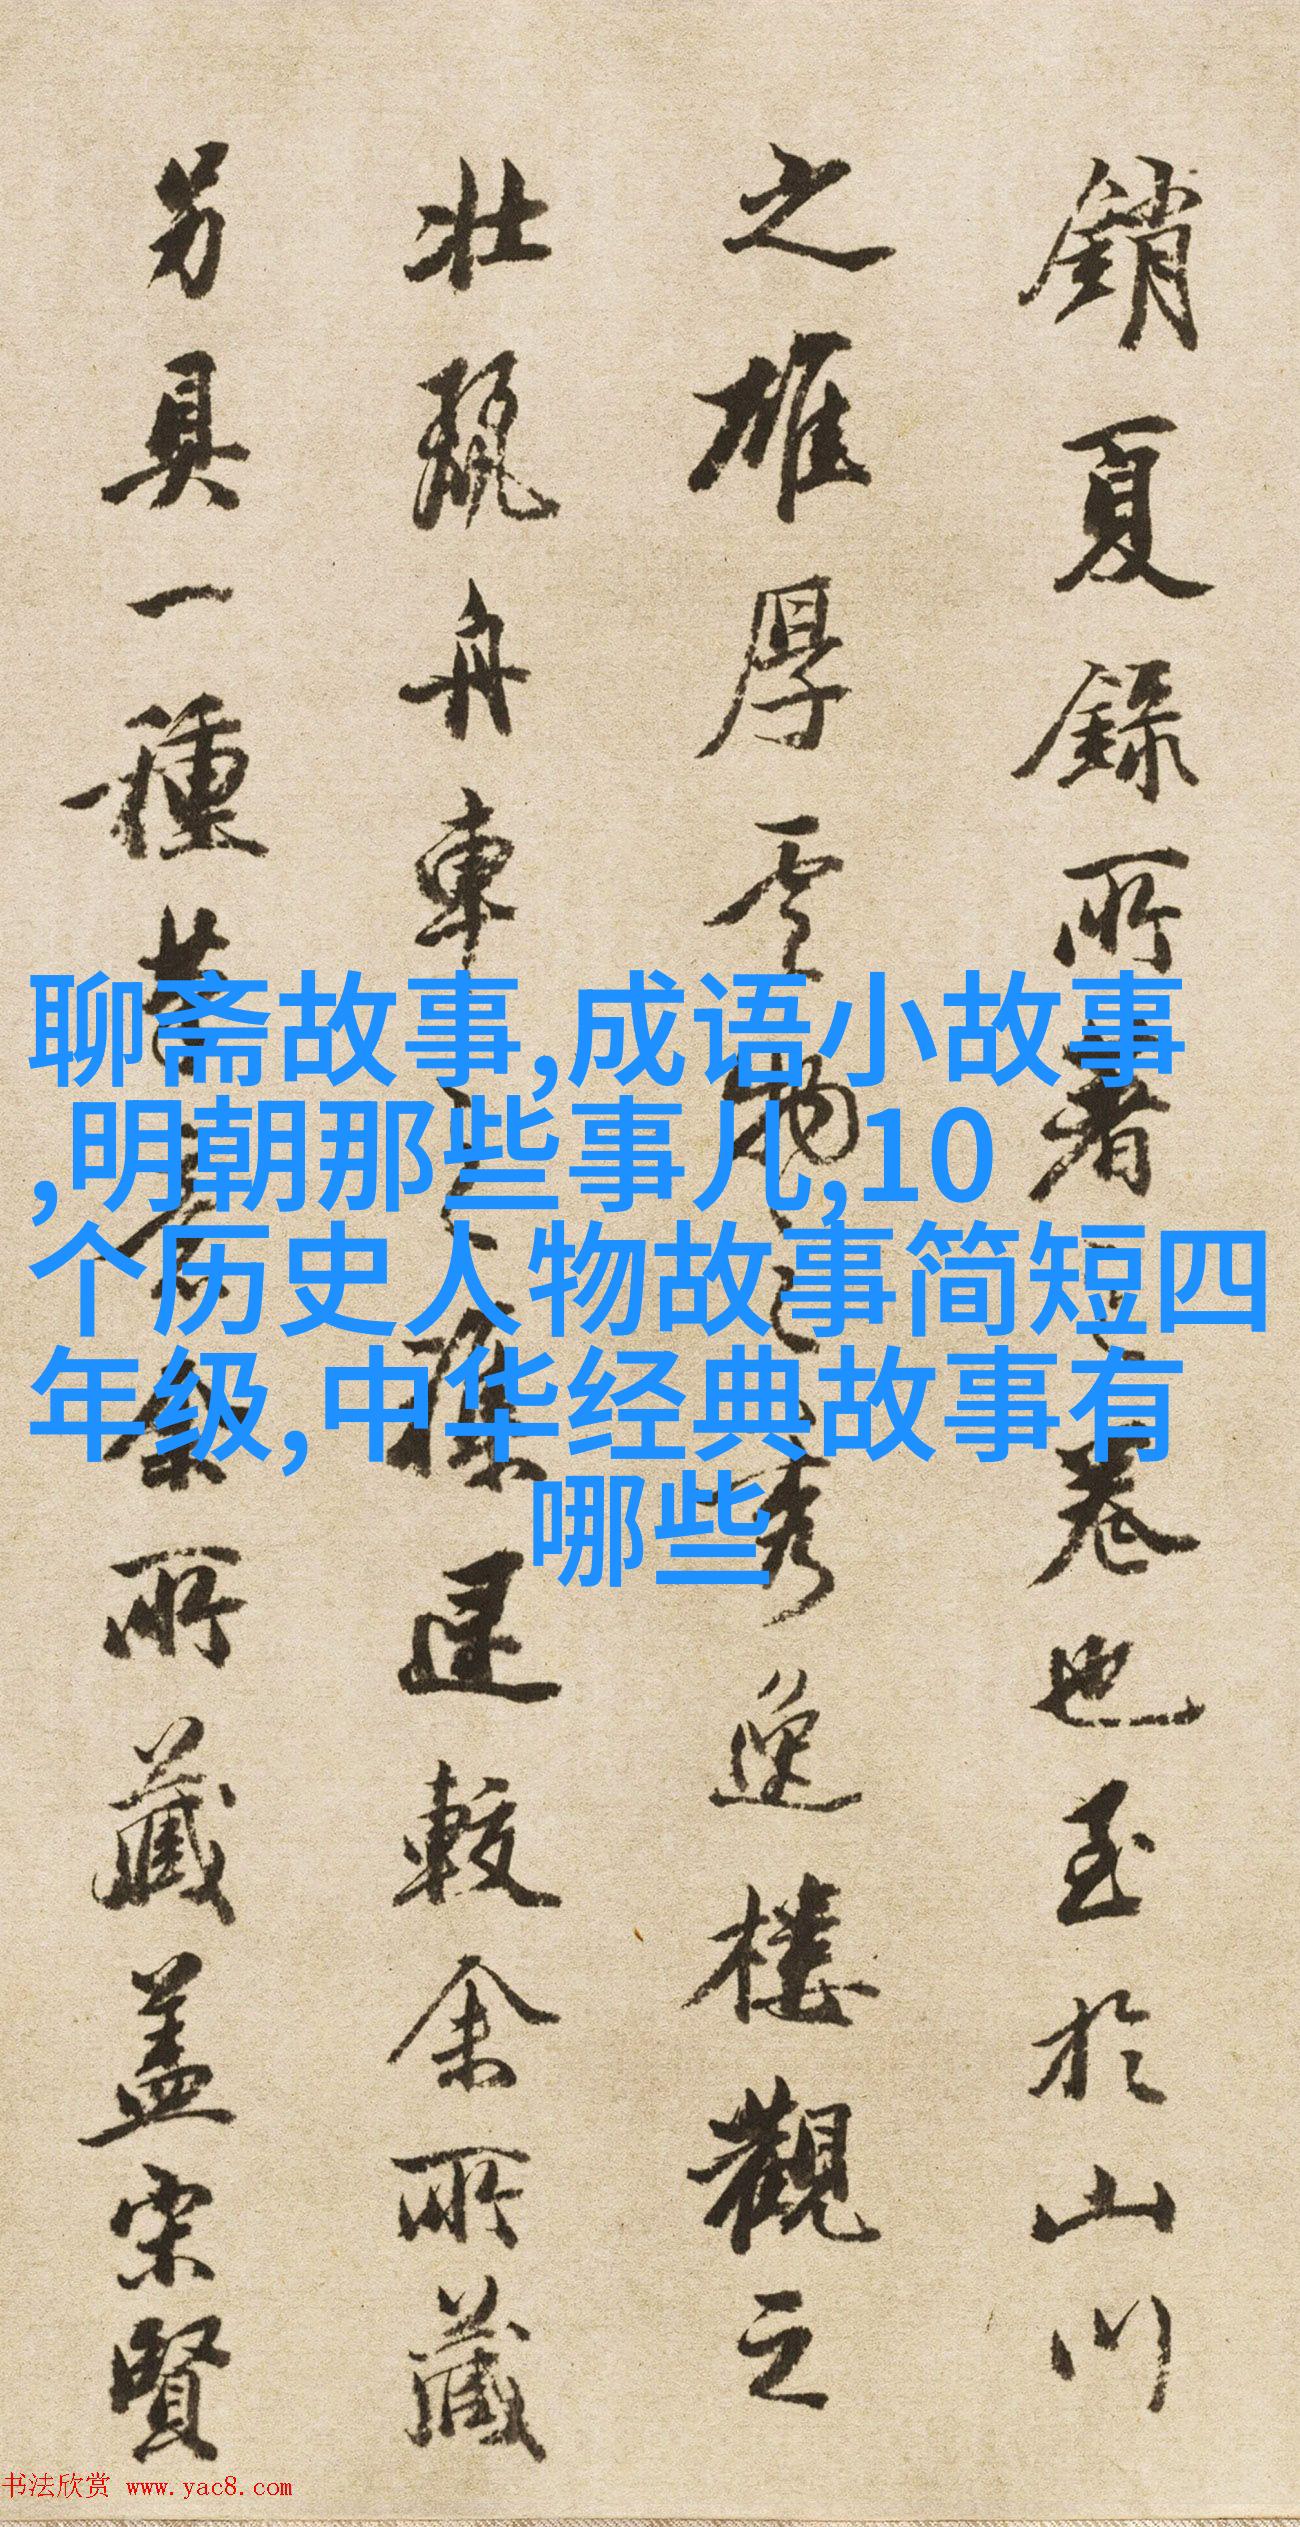 銷夏錄所著之卷也至於山川
之雄厚雲物之秀逸樓觀之
壯麗舟車之
遲較余所藏
另具一種
余所藏蓋宋賢
聊斋故事,成语小故事
,明朝那些事儿,10
个历史人物故事简短四
年级,中华经典故事有
哪些
书法欣赏 www.yac8.com